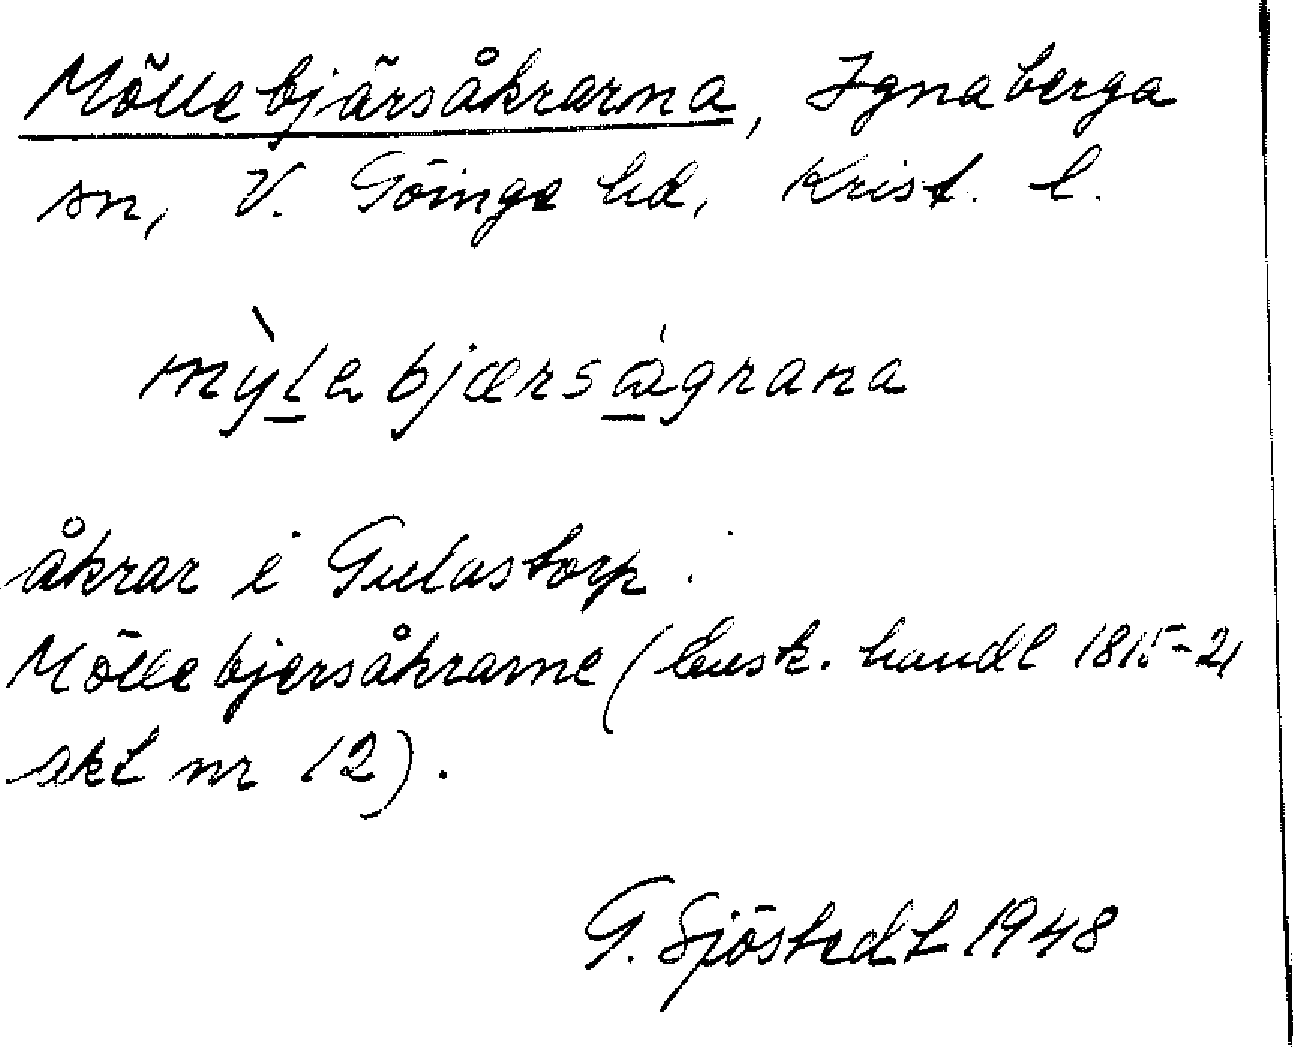 Möllebjärsåkrarna, Ignaberga
sn, V. Göinge hd, Krist. l.
mỳlebjærsågrana
åkrar i Gulastorp.
Möllebjersåkrarne (lusk. handl 1815-21
akt nr 12).
G. Sjöstedt 1948